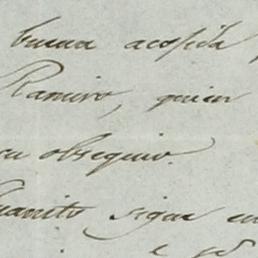 buena acojida
Ramiro, quien
su obsequio.
Juanito sigue en